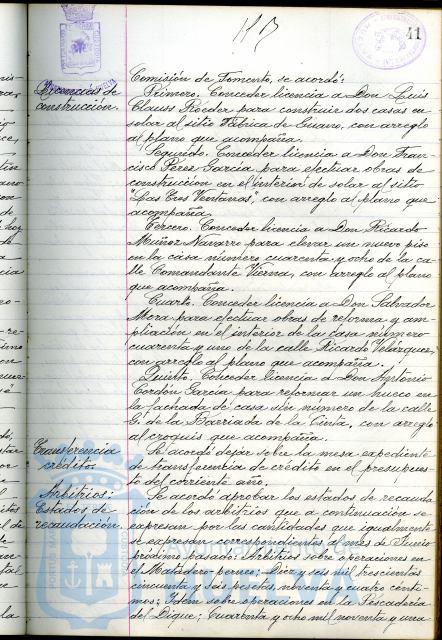 41
Comisión de Fomento, se acordó:
Licencias de
construcción.
Primero. Conceder licencia a Don Luis
Clauss Röeder para construir dos casas en
solar al sitio Fábrica de Guano, con arreglo
al plano que acompaña.
Segundo. Conceder licencia a Don Fran-
cisco Pérez García para efectuar obras de
construcción en el interior de solar al sitio
"Las Tres Ventanas", con arreglo al plano que
acompaña.
Tercero. Conceder licencia a Don Ricardo
Muñoz Navarro para elevar un nuevo piso
en la casa número cuarenta y ocho de la ca-
lle Comandante Vierna, con arreglo al plano
que acompaña.
Cuarto. Conceder licencia a Don Salvador
Mora para efectuar obras de reforma y am-
pliación en el interior de la casa número
cuarenta y uno de la calle Ricardo Velázquez,
con arreglo al plano que acompaña.
Quinto. Conceder licencia a Don Antonio
Cordón García para reformar un hueco en
la fachada de casa sin número de la calle
G. de la Barriada de la Cinta, con arreglo
al croquis que acompaña.
Transferencia
crédito.
Se acordó dejar sobre la mesa expediente
de transferencia de crédito en el presupues-
to del corriente año.
Arbitrios:
Estados de
recaudación.
Se acordó aprobar los estados de recauda-
ción de los arbitrios que a continuación se
expresan por las cantidades que igualmente
se expresan correspondientes al mes de Junio
próximo pasado: Arbitrios sobre operaciones en
el Matadero-perneo: Diez y seis mil trescientas
cincuenta y seis pesetas noventa y cuatro cénti-
mos; Idem sobre operaciones en la Pescadería
del Dique; Cuarenta y ocho mil noventa y una